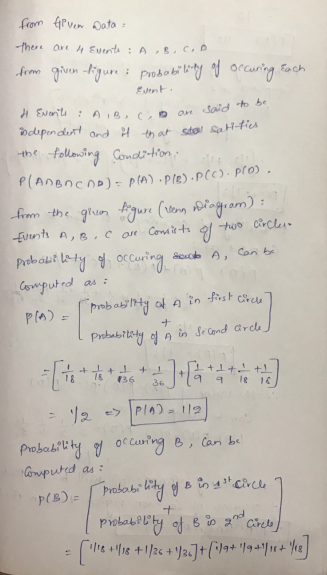 from Given Data :
there are 4 Events : A, B, C, D
from given figure : probability of occuring Each
Event.
4 Events : A, B, C, D are said to be
independent and if that satisfies
the following Condition.
P(A∩B∩C∩D) = P(A) · P(B) · P(C) · P(D) .
from the given figure (Venn Diagram) :
Events A, B, C are Consists of two Circles.
probability of occuring A, Can be
Computed as :
P(A) = [ probability of A in first Circle
+
probability of A in Second Circle ]
= [ 1/18 + 1/18 + 1/36 + 1/36 ] + [ 1/9 + 1/9 + 1/18 + 1/18 ]
= 1/2 => P(A) = 1/2
probability of occuring B, Can be
Computed as :
P(B) = [ probability of B in 1st Circle
+
probability of B in 2nd Circle ]
= [ 1/18 + 1/18 + 1/36 + 1/36 ] + [ 1/9 + 1/9 + 1/18 + 1/18 ]